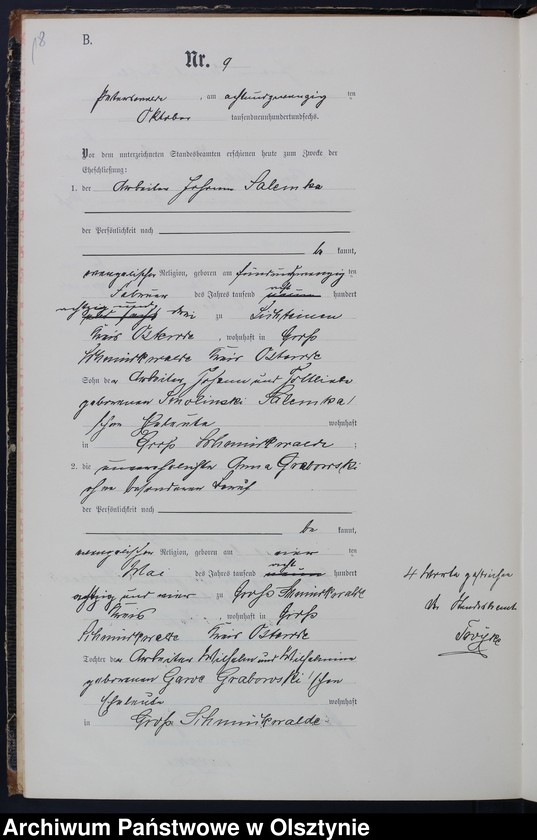 B.
Nr. 9
Peterswalde, am achtundzwanzig ten
Oktober tausendneunhundertundsechs.
Vor dem unterzeichneten Standesbeamten erschienen heute zum Zwecke der
Eheschließung:
1. der Arbeiter Johann Salemka
der Persönlichkeit nach
be kannt,
evangelischer Religion, geboren am fünfundzwanzig ten
Februar des Jahres tausend acht neun hundert
achtzig und drei zu
Kreis Osterode, wohnhaft in Groß
Schmückwalde Kreis Osterode
Sohn der Arbeiter Johann und Gottliebe
geborenen Smolinski Salemka'
schen Eheleute wohnhaft
in Groß Schmückwalde;
2. die unverehelichte Anna Grabowski
ohne besonderen Beruf
der Persönlichkeit nach
be kannt,
evangelischer Religion, geboren am vier ten
Mai des Jahres tausend acht neun hundert
achtzig und vier zu Groß Schmückwalde
Kreis, wohnhaft in Groß
Schmückwalde Kreis Osterode
Tochter der Arbeiter Wilhelm und Wilhelmine
geborenen Grabowski'schen
Eheleute wohnhaft
in Groß Schmückwalde
4 Worte gestrichen
Der Standesbeamte
Archiwum Państwowe w Olsztynie